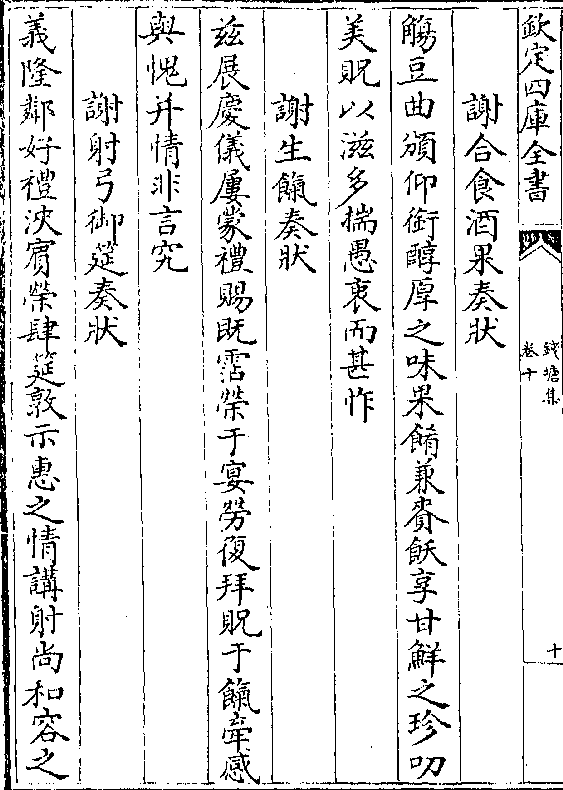 欽定四庫全書
錢塘集
卷十
十
謝合食酒果奏狀
觴豆曲頒仰銜醇厚之味果餚兼賚飫享甘鮮之珍叨
美貺以滋多揣愚衷而甚怍
謝生餼奏狀
兹展慶儀屢蒙禮賜既霑榮于宴勞復拜貺于餼牽感
與愧并情非言究
謝射弓御筵奏狀
義隆鄰好禮浹賓榮肆筵敦示惠之情講射尚和容之